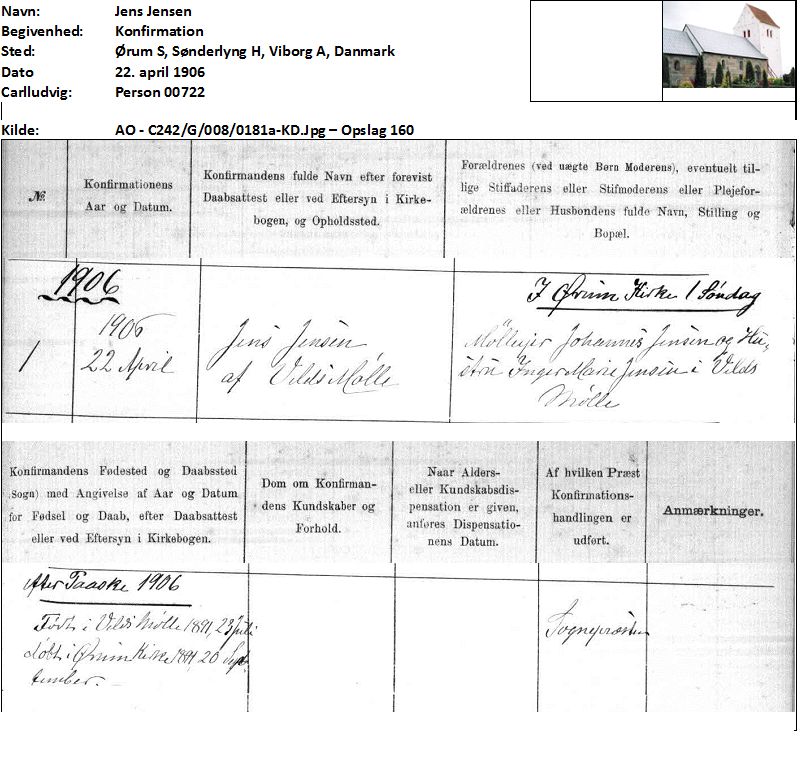 Navn: Jens Jensen
Begivenhed: Konfirmation
Sted: Ørum S, Sønderlyng H, Viborg A, Danmark
Dato 22. april 1906
Carlludvig: Person 00722
Kilde: AO - C242/G/008/0181a-KD.Jpg – Opslag 160
№.
Konfirmationens
Aar og Datum.
Konfirmandens fulde Navn efter forevist
Daabsattest eller ved Eftersyn i Kirke-
bogen, og Opholdssted.
Forældrenes (ved uægte Børn Moderens), eventuelt til-
lige Stiffaderens eller Stifmoderens eller Plejefor-
ældrenes eller Husbondens fulde Navn, Stilling og
Bopæl.
1906
I Ørum Kirke 1 Søndag
1
1906
22 April
Jens Jensen
af Vilds Mølle
Mølleejer Johannes Jensen og Hu-
stru Inger Marie Jensen i Vilds
Mølle
Konfirmandens Fødested og Daabssted
(Sogn) med Angivelse af Aar og Datum
for Fødsel og Daab, efter Daabsattest
eller ved Eftersyn i Kirkebogen.
Dom om Konfirman-
dens Kundskaber og
Forhold.
Naar Alders-
eller Kundskabsdis-
pensation er given,
anføres Dispensatio-
nens Datum.
Af hvilken Præst
Konfirmations-
handlingen er
udført.
Anmærkninger.
efter Paaske 1906
Født i Vilds Mølle 1891, 23 Juli
døbt i Ørum Kirke 1891, 20 Sep-
tember.
Sognepræsten